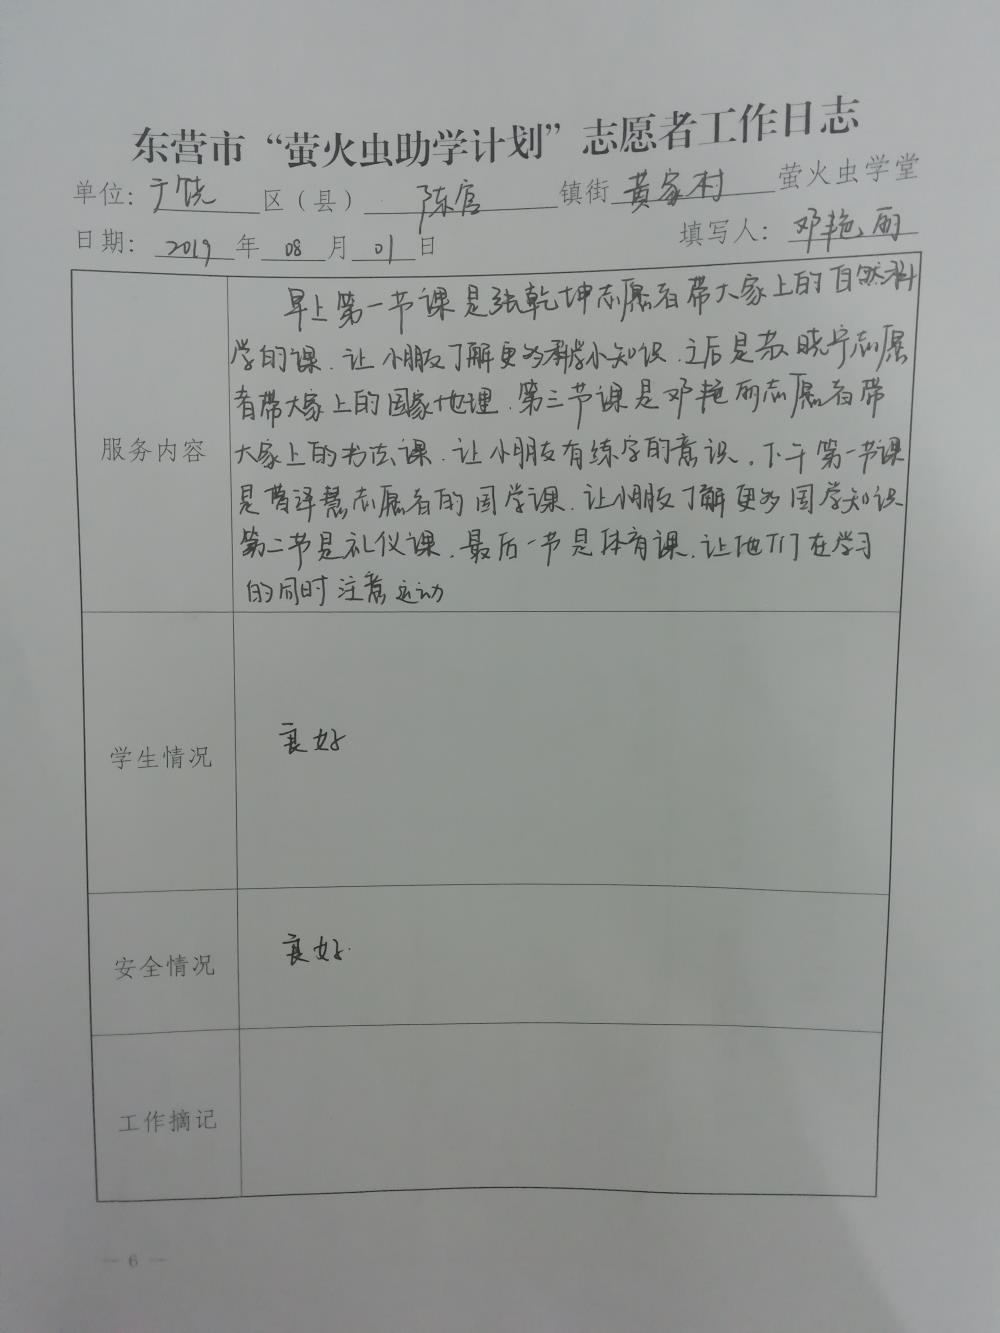 东营市“萤火虫助学计划”志愿者工作日志
单位：广饶 区（县） 陈官 镇街 黄家村 萤火虫学堂
日期：2019 年 08 月 01 日 填写人：邓艳丽
服务内容
早上第一节课是张乾坤志愿者带大家上的自然科
学的课.让小朋友了解更多科学小知识.之后是苏晓宁志愿
者带大家上的国家地理.第三节课是邓艳丽志愿者带
大家上的书法课.让小朋友有练字的意识.下午第一节课
是曹译慧志愿者的国学课.让小朋友了解更多国学知识
第二节是礼仪课.最后一节是体育课.让他们在学习
的同时注意运动
学生情况
良好
安全情况
良好.
工作摘记
— 6 —